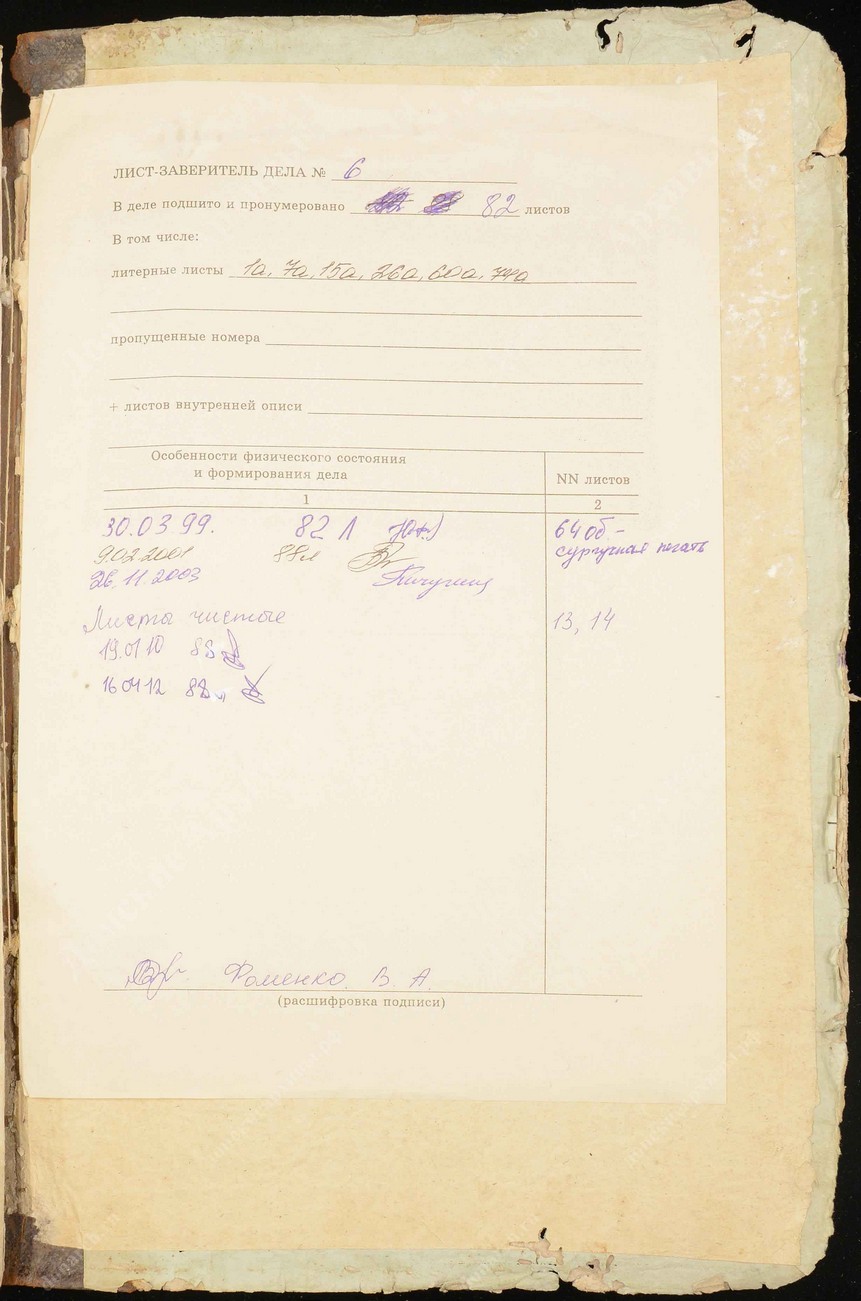 ЛИСТ-ЗАВЕРИТЕЛЬ ДЕЛА № 6
В деле подшито и пронумеровано 82 листов
В том числе:
литерные листы 1а, 7а, 15а, 26а, 60а, 74а
пропущенные номера
+ листов внутренней описи
Особенности физического состояния
и формирования дела
NN листов
1 2
30.03 99. 82 л 64 об -
9.02.2001 88л сургучная печать
26.11.2003 Пичугина
Листы чистые 13, 14
19.01 10 88
16 04 12 88
Фоменко В. А.
(расшифровка подписи)